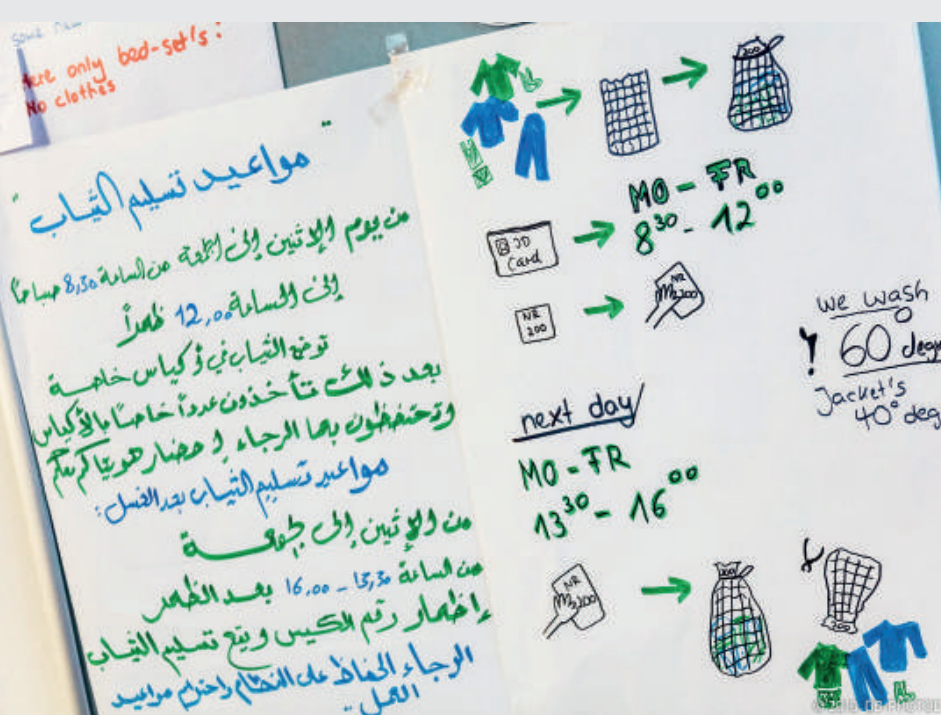 some
Here only bed-set's!
No clothes
" مواعيد تسليم الثياب "
من يوم الإثنين إلى الجمعة من الساعة 8,30 صباحاً
إلى الساعة 12,00 ظهراً
توضع الثياب في أكياس خاصة
بعد ذلك تأخذون عدداً خاصاً بالأكياس
وتحتفظون بها الرجاء إحضار هوياتكم معكم
مواعيد تسليم الثياب بعد الغسل :
من الإثنين إلى الجمعة
من الساعة 13,30 - 16,00 بعد الظهر
إظهار رقم الكيس ويتم تسليم الثياب
الرجاء الحفاظ على النظام واحترام مواعيد
العمل ..
200
MO - FR
8 30 - 12 00
ID
Card
NR
200
NR
200
we wash
! 60 deg
Jacket's
40° deg
next day
MO - FR
13 30 - 16 00
NR
200
200
200